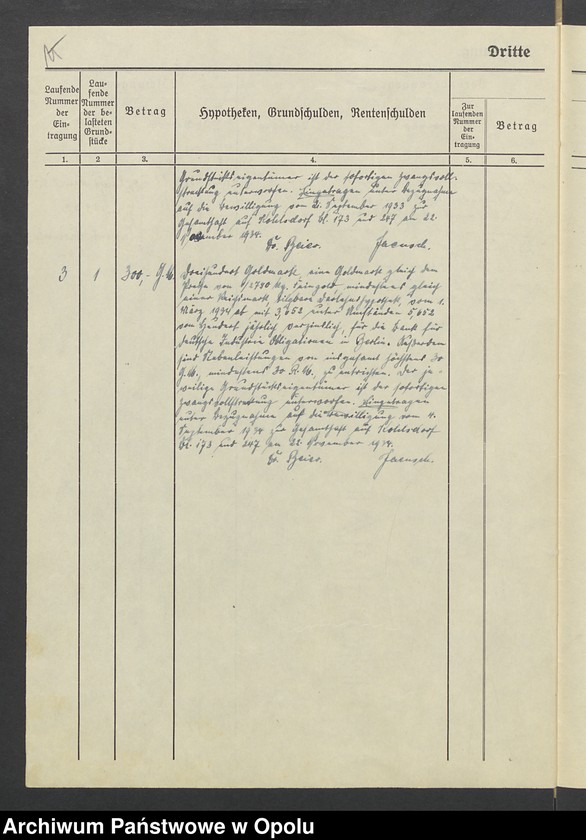 Dritte
Laufende
Nummer
der
Ein-
tragung
Lau-
fende
Nummer
der be-
lasteten
Grund-
stücke
Betrag
Hypotheken, Grundschulden, Rentenschulden
Zur
laufenden
Nummer
der
Ein-
tragung
Betrag
1. 2 3. 4. 5. 6.
Grundstückseigentümer ist der sofortigen Zwangsvoll-
streckung unterworfen. Eingetragen unter Bezugnahme
auf die Bewilligung vom 21. September 1933 zur
Gesamthaft auf Bl. 173 und 247 am 22.
November 1934.
Jaensch.
3 1 300,- G.M. Dreihundert Goldmark, eine Goldmark gleich dem
Preise von 1/2790 kg Feingold, mindestens gleich
einer Reichsmark, Darlehnshypothek, vom 1.
März 1934 ab mit unter Umständen
vom Hundert jährlich verzinslich, für die Bank für
deutsche Industrie Obligationen in Berlin. Außerdem
sind Nebenleistungen von insgesamt höchstens 30
G.M., mindestens 30 R.M. zu entrichten. Der je-
weilige Grundstückseigentümer ist der sofortigen
Zwangsvollstreckung unterworfen. Eingetragen
unter Bezugnahme auf die Bewilligung vom 4.
September 1934 zur Gesamthaft auf
Bl. 173 und 247 am 22. November 1934.
Jaensch.
Archiwum Państwowe w Opolu